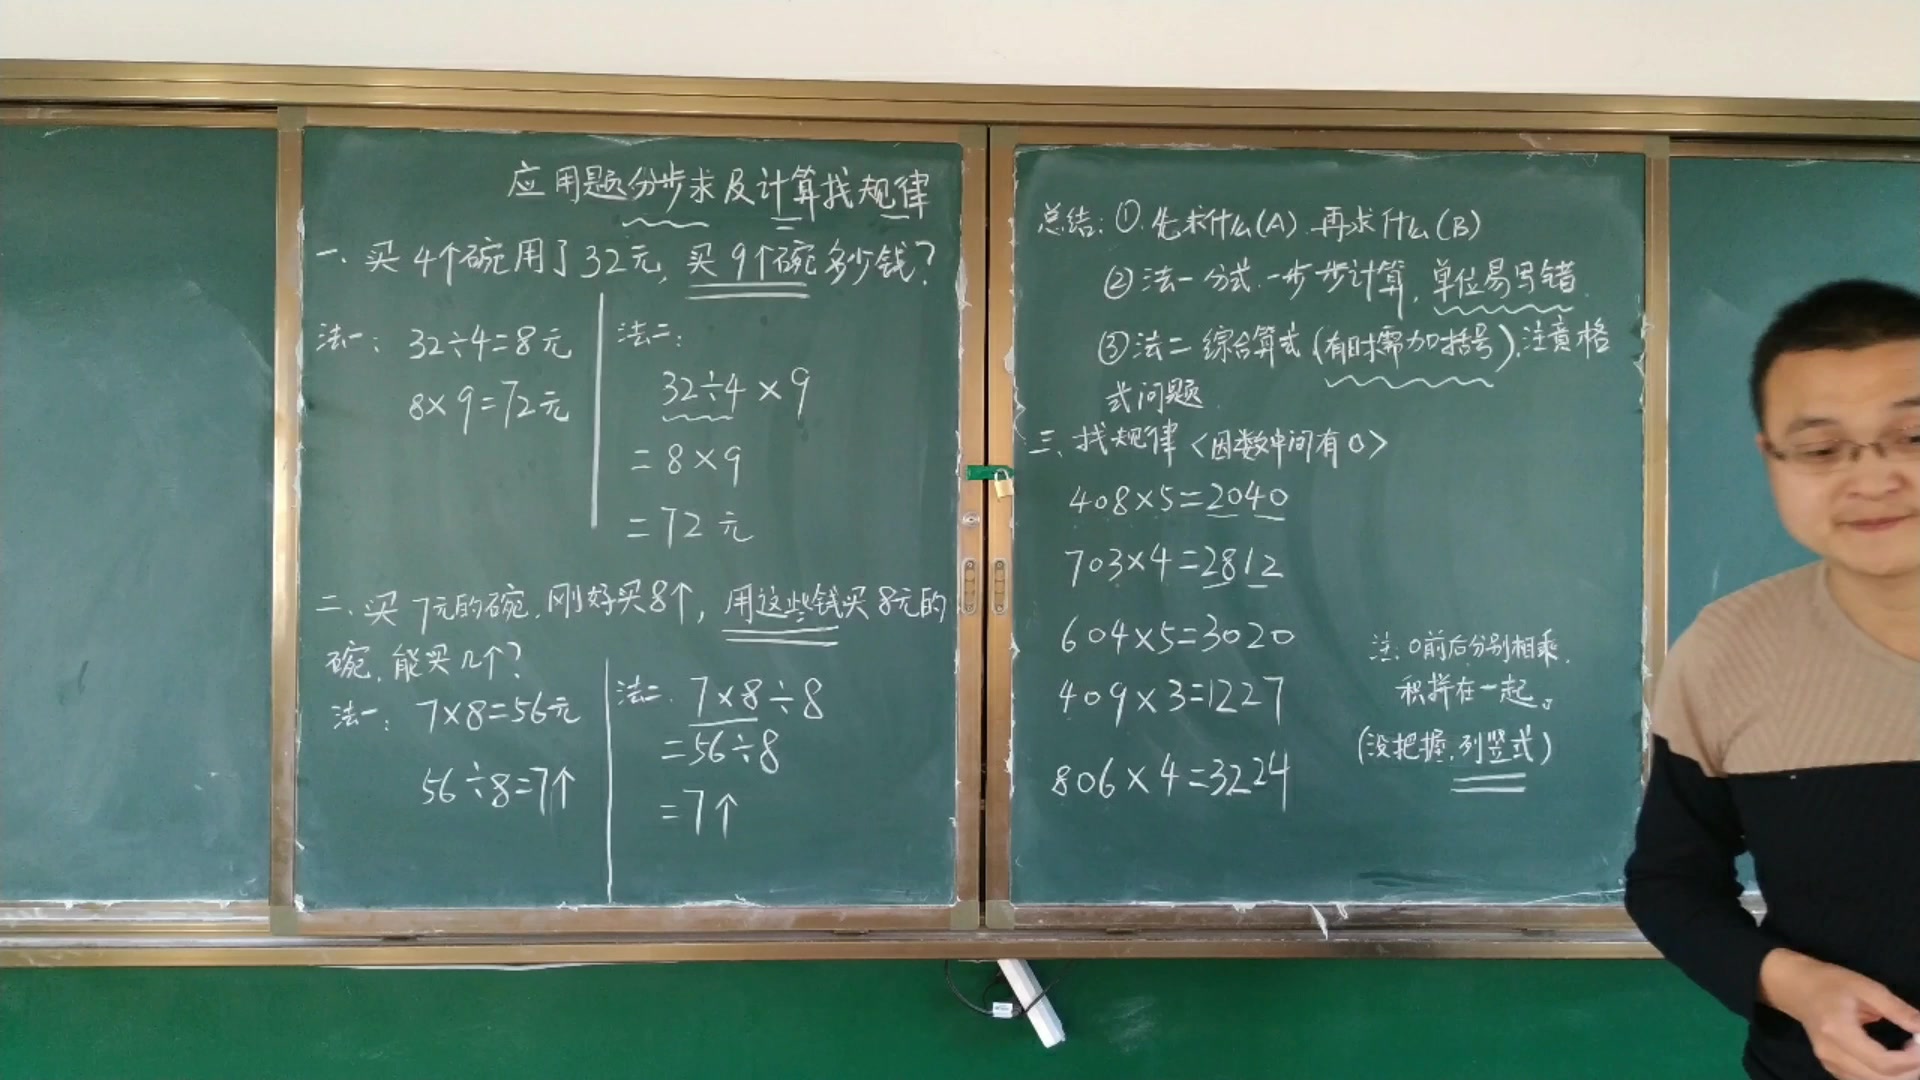 应用题分步求及计算找规律
一、买4个碗用了32元,买9个碗多少钱?
法一: 32÷4=8元
8×9=72元
法二:
32÷4×9
=8×9
=72元
二、买7元的碗,刚好买8个,用这些钱买8元的
碗,能买几个?
法一: 7×8=56元
56÷8=7个
法二. 7×8÷8
=56÷8
=7个
总结: ①.先求什么(A).再求什么(B)
②法一分式.一步步计算,单位易写错.
③法二综合算式(有时需加括号).注意格
式问题.
三、找规律<因数中间有0>
408×5=2040
703×4=2812
604×5=3020
409×3=1227
806×4=3224
注:0前后分别相乘.
积拼在一起。
(没把握.列竖式)